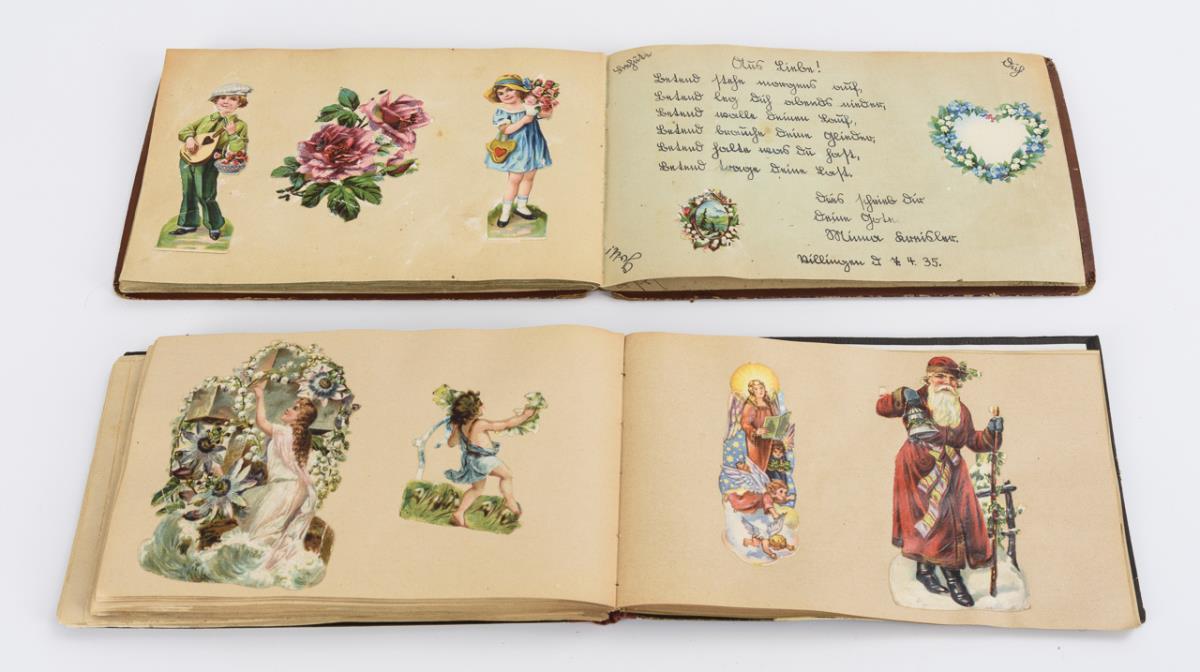 Behüte
Dich
Aus Liebe!
Betend stehe morgens auf,
Betend leg dich abends nieder,
Betend walle deinen Lauf,
Betend brauche deine Glieder,
Betend halte was du hast,
Betend trage deine Last.
Dies schrieb dir
deine Gote
Minna Kreisler.
Gott!
Villingen d 4. 35.